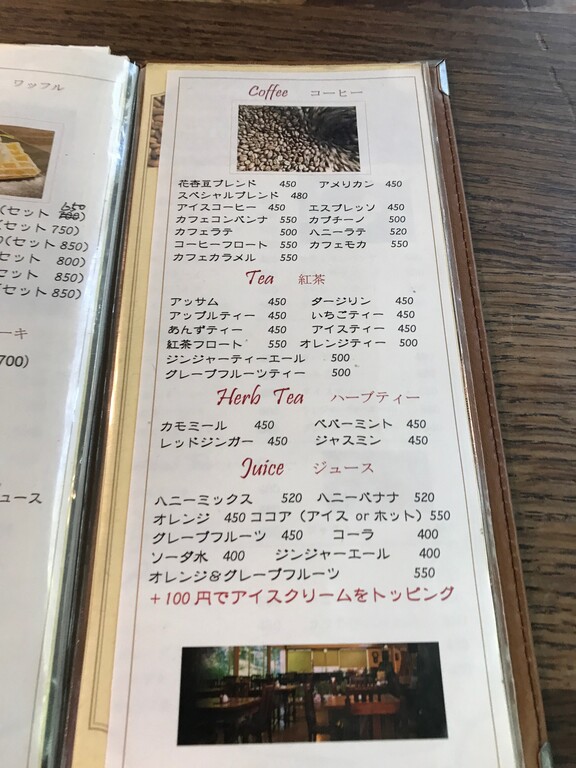 ワッフル
(セット 650
700)
(セット 750)
(セット 850)
セット 800)
セット 850)
(セット 850)
ーキ
700)
ュース
Coffee コーヒー
花杏豆ブレンド 450 アメリカン 450
スペシャルブレンド 480
アイスコーヒー 450 エスプレッソ 450
カフェコンパンナ 550 カプチーノ 500
カフェラテ 500 ハニーラテ 520
コーヒーフロート 550 カフェモカ 550
カフェカラメル 550
Tea 紅茶
アッサム 450 ダージリン 450
アップルティー 450 いちごティー 450
あんずティー 450 アイスティー 450
紅茶フロート 550 オレンジティー 500
ジンジャーティーエール 500
グレープフルーツティー 500
Herb Tea ハーブティー
カモミール 450 ペパーミント 450
レッドジンガー 450 ジャスミン 450
Juice ジュース
ハニーミックス 520 ハニーバナナ 520
オレンジ 450 ココア(アイス or ホット) 550
グレープフルーツ 450 コーラ 400
ソーダ水 400 ジンジャーエール 400
オレンジ&グレープフルーツ 550
+100 円でアイスクリームをトッピング